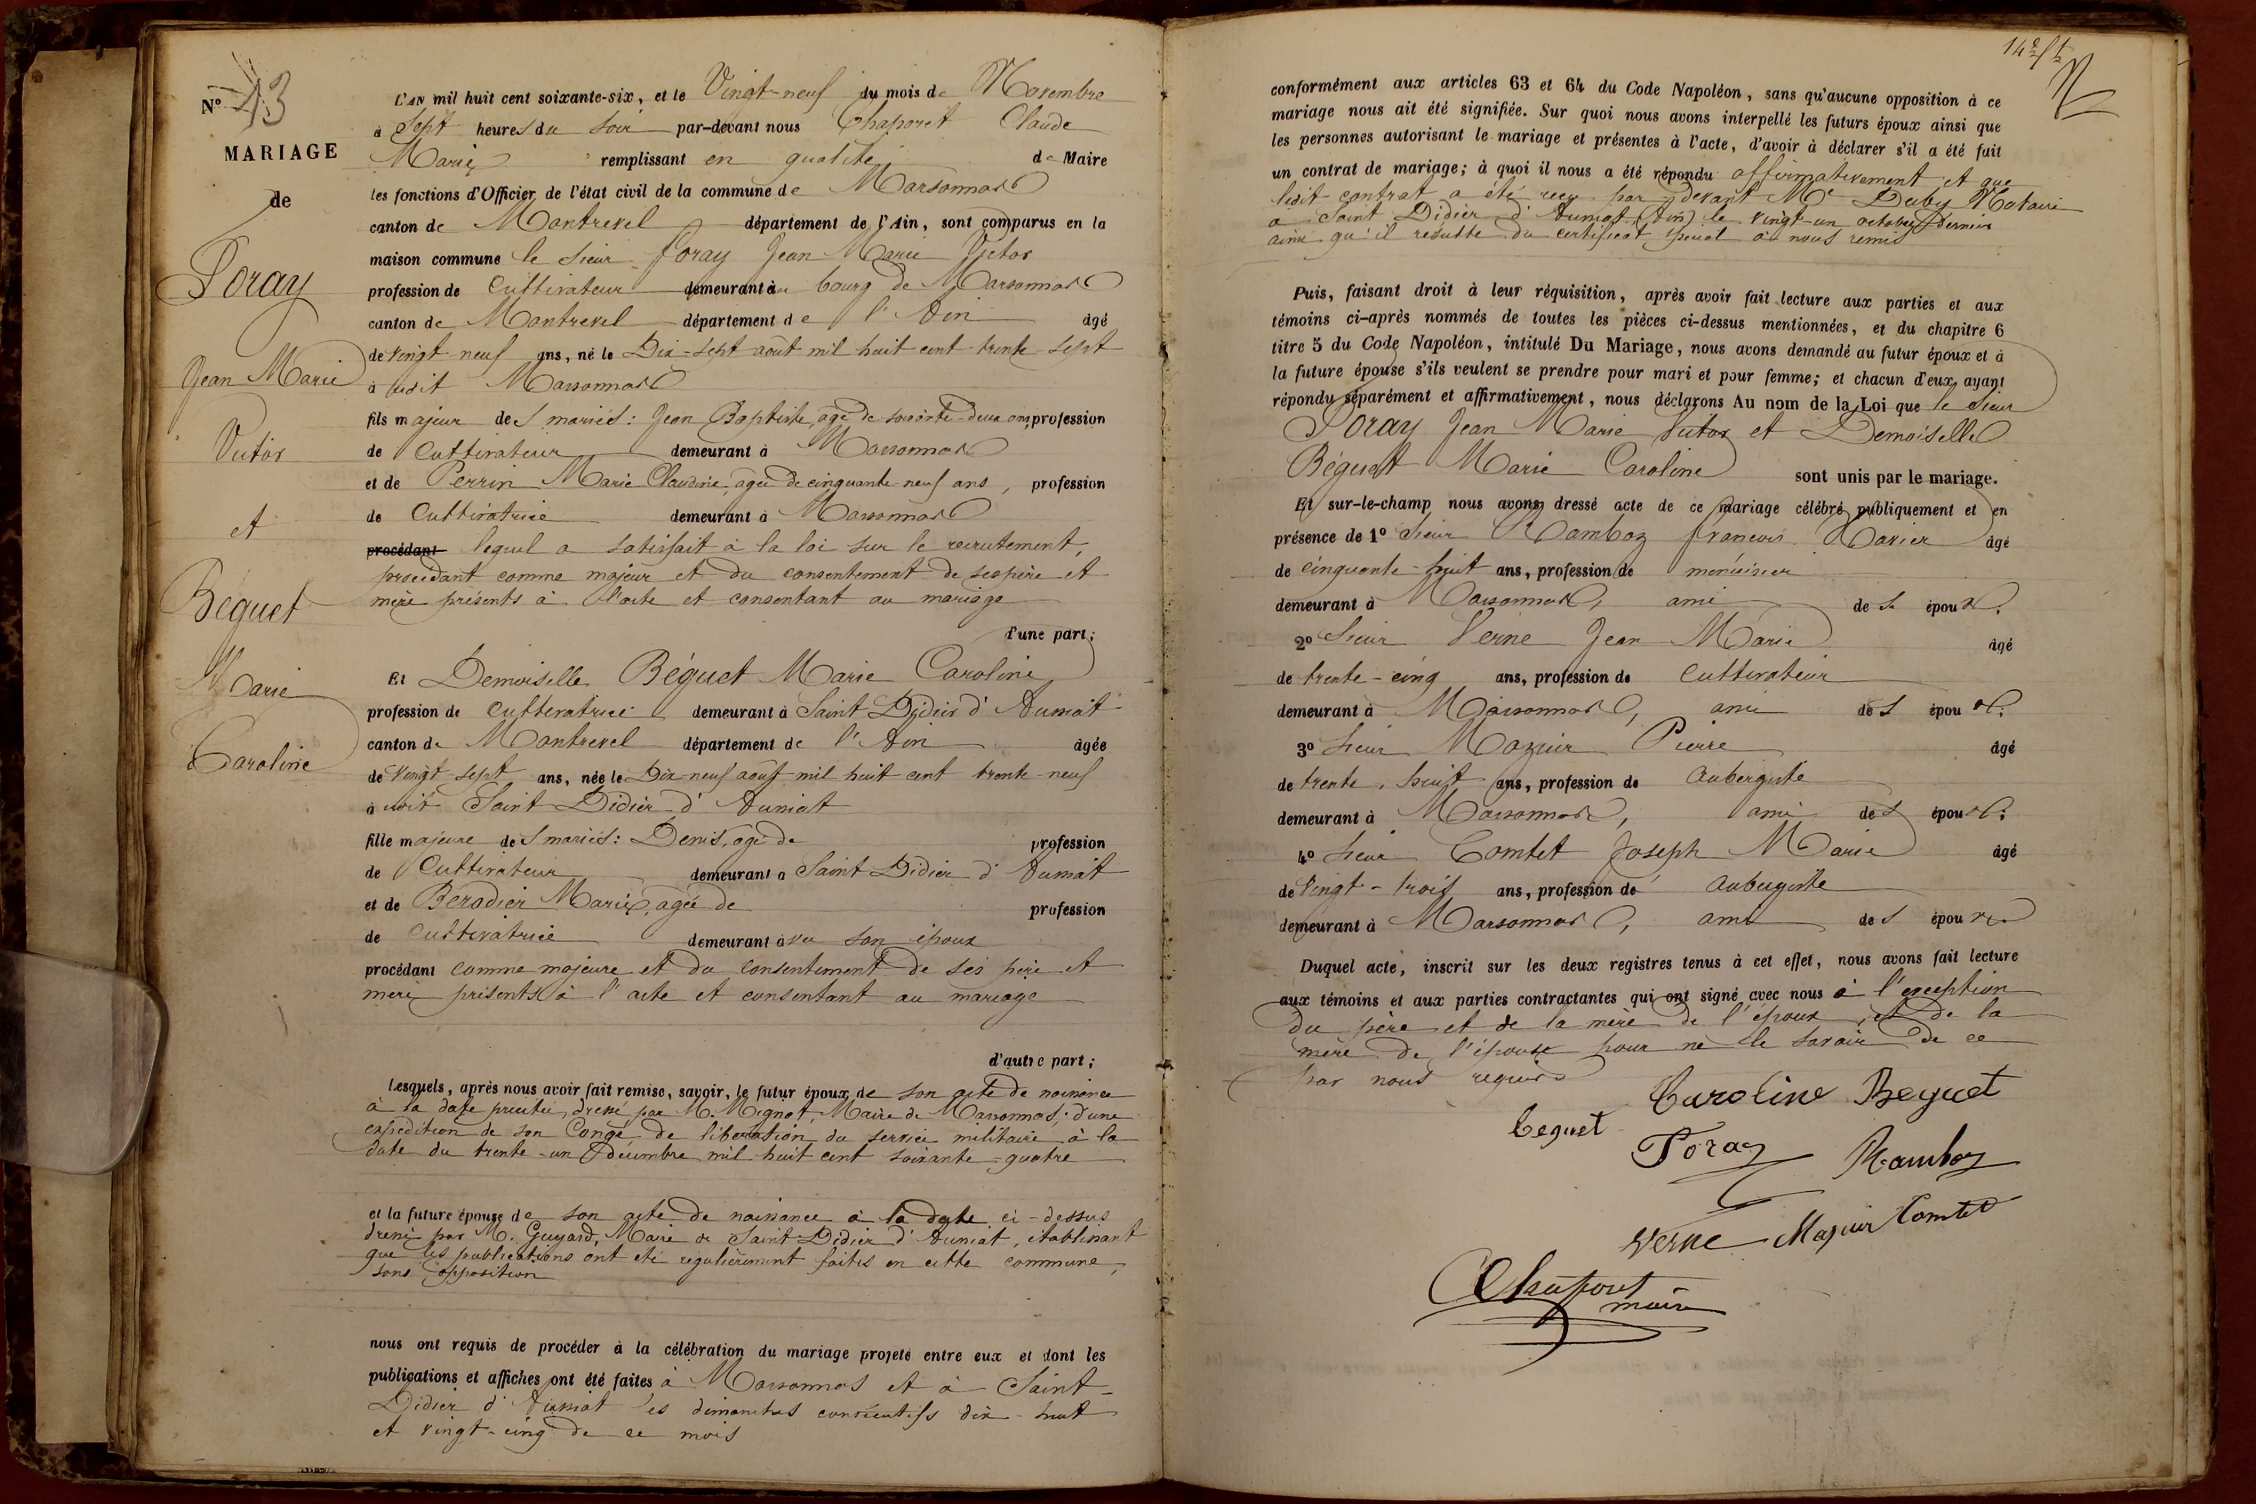 N° 13
MARIAGE
de
Foray
Jean Marie
Victor
et
Béguet
Marie
Caroline
L'AN mil huit cent soixante-six, et le Vingt-neuf du mois de Novembre
à Sept heures du soir par-devant nous Chaporet Claude
Marie remplissant en qualité de Maire
les fonctions d'Officier de l'état civil de la commune de Marsonnas
canton de Montrevel département de l'Ain, sont comparus en la
maison commune le sieur Foray Jean Marie Victor
profession de Cultivateur demeurant au bourg de Marsonnas
canton de Montrevel département de l'Ain âgé
de vingt neuf ans, né le Dix-sept août mil huit cent trente sept
à audit Marsonnas
fils majeur des mariés : Jean Baptiste, âgé de soixante-deux ans, profession
de Cultivateur demeurant à Marsonnas
et de Perrin Marie Claudine, âgée de cinquante-neuf ans, profession
de Cultivatrice demeurant à Marsonnas
procédant lequel a satisfait à la loi sur le recrutement,
procédant comme majeur et du consentement de ses père et
mère présents à l'acte et consentant au mariage
d'une part;
Et Demoiselle Béguet Marie Caroline
profession de Cultivatrice demeurant à Saint Didier d'Aussiat
canton de Montrevel département de l'Ain âgée
de vingt-sept ans, née le Dix-neuf août mil huit cent trente-neuf
à audit Saint Didier d'Aussiat
fille majeure des mariés : Denis, âgé de profession
de Cultivateur demeurant à Saint Didier d'Aussiat
et de Béradier Marie, âgée de profession
de Cultivatrice demeurant avec son époux
procédant comme majeure et du consentement de ses père et
mère présents à l'acte et consentant au mariage
d'autre part;
Lesquels, après nous avoir fait remise, savoir, le futur époux de son acte de naissance
à la date précitée, dressé par M. Mignot, Maire de Marsonnas; d'une
expédition de son Congé de libération du service militaire à la
date du trente-un décembre mil huit cent soixante-quatre
et la future épouse de son acte de naissance à la date ci-dessus
dressé par M. Guyard, Maire de Saint Didier d'Aussiat, établissant
que les publications ont été régulièrement faites en cette commune,
sans opposition
nous ont requis de procéder à la célébration du mariage projeté entre eux et dont les
publications et affiches ont été faites à Marsonnas et à Saint-
Didier d'Aussiat les dimanches consécutifs dix-huit
et vingt-cinq de ce mois
conformément aux articles 63 et 64 du Code Napoléon, sans qu'aucune opposition à ce
mariage nous ait été signifiée. Sur quoi nous avons interpellé les futurs époux ainsi que
les personnes autorisant le mariage et présentes à l'acte, d'avoir à déclarer s'il a été fait
un contrat de mariage; à quoi il nous a été répondu affirmativement et que
ledit contrat a été reçu par devant Me Duby Notaire
à Saint Didier d'Aussiat (Ain) le vingt-un octobre dernier
ainsi qu'il résulte du certificat spécial à nous remis
Puis, faisant droit à leur réquisition, après avoir fait lecture aux parties et aux
témoins ci-après nommés de toutes les pièces ci-dessus mentionnées, et du chapitre 6
titre 5 du Code Napoléon, intitulé Du Mariage, nous avons demandé au futur époux et à
la future épouse s'ils veulent se prendre pour mari et pour femme; et chacun d'eux ayant
répondu séparément et affirmativement, nous déclarons Au nom de la Loi que le sieur
Foray Jean Marie Victor et Demoiselle
Béguet Marie Caroline sont unis par le mariage.
Et sur-le-champ nous avons dressé acte de ce mariage célébré publiquement et en
présence de 1° Sieur Ramboz françois Xavier âgé
de cinquante-huit ans, profession de menuisier
demeurant à Marsonnas, ami des époux.
2° Sieur Verne Jean Marie âgé
de trente-cinq ans, profession de Cultivateur
demeurant à Marsonnas, ami des époux.
3° Sieur Mazuir Pierre âgé
de trente-huit ans, profession de Aubergiste
demeurant à Marsonnas, ami des époux.
4° Sieur Comtet Joseph Marie âgé
de vingt-trois ans, profession de Aubergiste
demeurant à Marsonnas, ami des époux
Duquel acte, inscrit sur les deux registres tenus à cet effet, nous avons fait lecture
aux témoins et aux parties contractantes qui ont signé avec nous à l'exception
du père et de la mère de l'époux, et de la
mère de l'épouse pour ne le savoir de ce
par nous requis
Caroline Beguet
beguet
Foray Ramboz
Verne Mazuir Comtet
maire